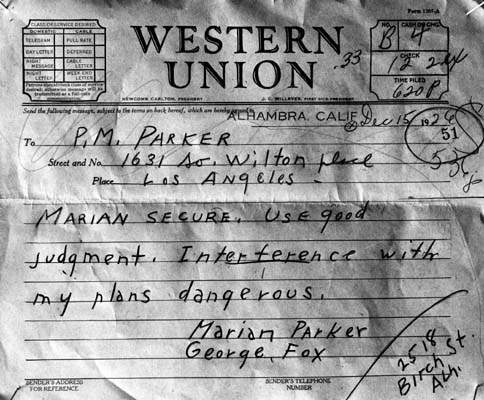 Form 1207-A
CLASS OF SERVICE DESIRED
DOMESTIC CABLE
TELEGRAM FULL RATE
DAY LETTER DEFERRED
NIGHT MESSAGE CABLE LETTER
NIGHT LETTER WEEK END LETTER
Patrons should check class of service desired; otherwise message will be transmitted as a full-rate
WESTERN
UNION
.33
NEWCOMB CARLTON, PRESIDENT J. C. WILLEVER, FIRST VICE-PRESIDENT
NO. CASH OR CHG.
B 4
CHECK
12
TIME FILED
620P
Send the following message, subject to the terms on back hereof, which are hereby agreed to
ALHAMBRA, CALIF. Dec 15 1926
51
To P.M. PARKER
Street and No. 1631 So. Wilton place
Place Los Angeles
Marian secure. Use good
judgment. Interference with
my plans dangerous.
Marian Parker
George Fox
2518
Birch St.
Alh.
SENDER'S ADDRESS FOR REFERENCE
SENDER'S TELEPHONE NUMBER